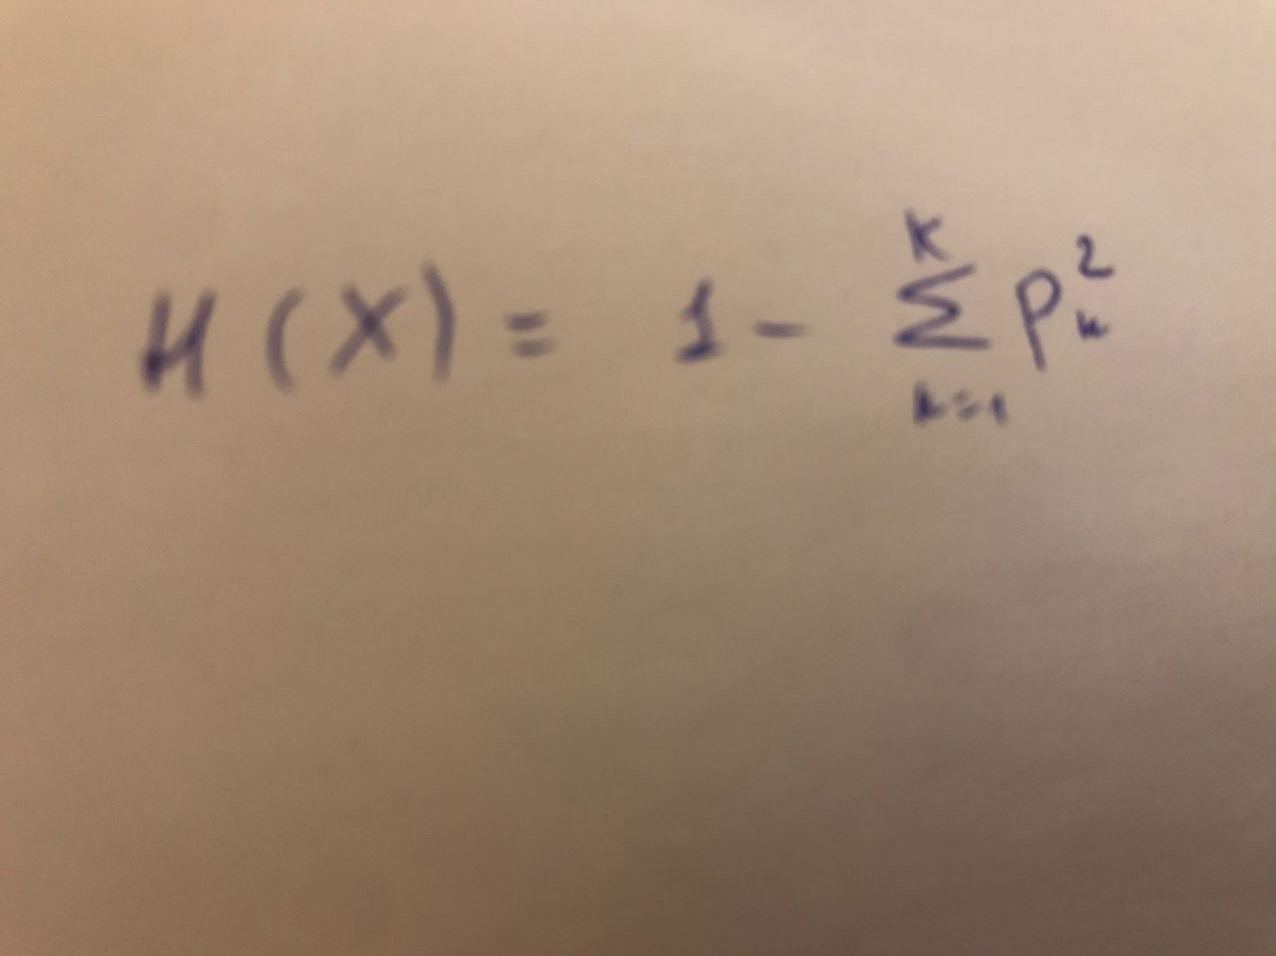 H(X) = 1 - \sum_{k=1}^{K} p_k^2